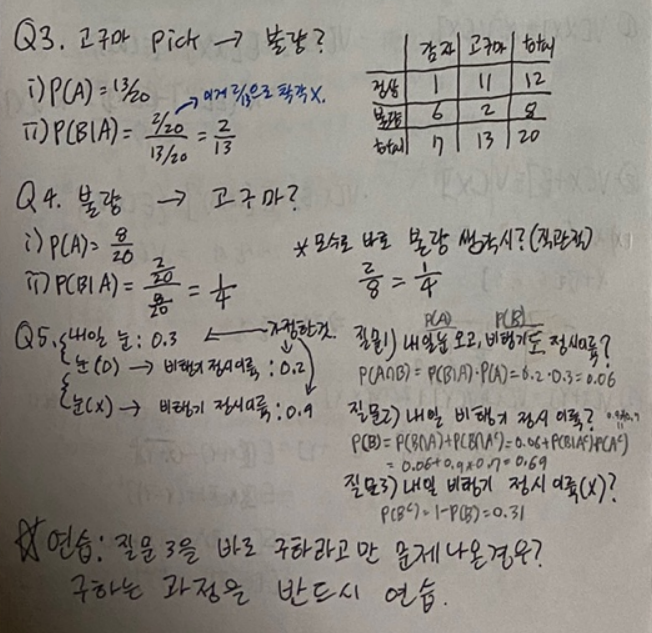 Q3. 고구마 pick → 불량?
i) P(A) = 13/20 → 이거 2/13으로 착각 X.
ii) P(B|A) = (2/20)/(13/20) = 2/13
감자 고구마 total
정상 1 11 12
불량 6 2 8
total 7 13 20
Q4. 불량 → 고구마?
i) P(A) = 8/20
ii) P(B|A) = (2/20)/(8/20) = 1/4
* 모수로 바로 불량 생각시? (직관적)
2/8 = 1/4
Q5. 내일 눈: 0.3 ← 가정한것.
눈(O) → 비행기 정시이륙 : 0.2
눈(X) → 비행기 정시이륙 : 0.9
P(A) P(B)
질문1) 내일 눈 오고, 비행기도 정시이륙?
P(A∩B) = P(B|A)·P(A) = 0.2·0.3 = 0.06
질문2) 내일 비행기 정시 이륙?
P(B) = P(B∩A)+P(B∩Aᶜ) = 0.06+P(B|Aᶜ)P(Aᶜ)
= 0.06+0.9×0.7 = 0.69
질문3) 내일 비행기 정시 이륙(X)?
P(Bᶜ) = 1-P(B) = 0.31
☆ 연습: 질문 3을 바로 구하라고만 문제 나온경우?
구하는 과정을 반드시 연습.